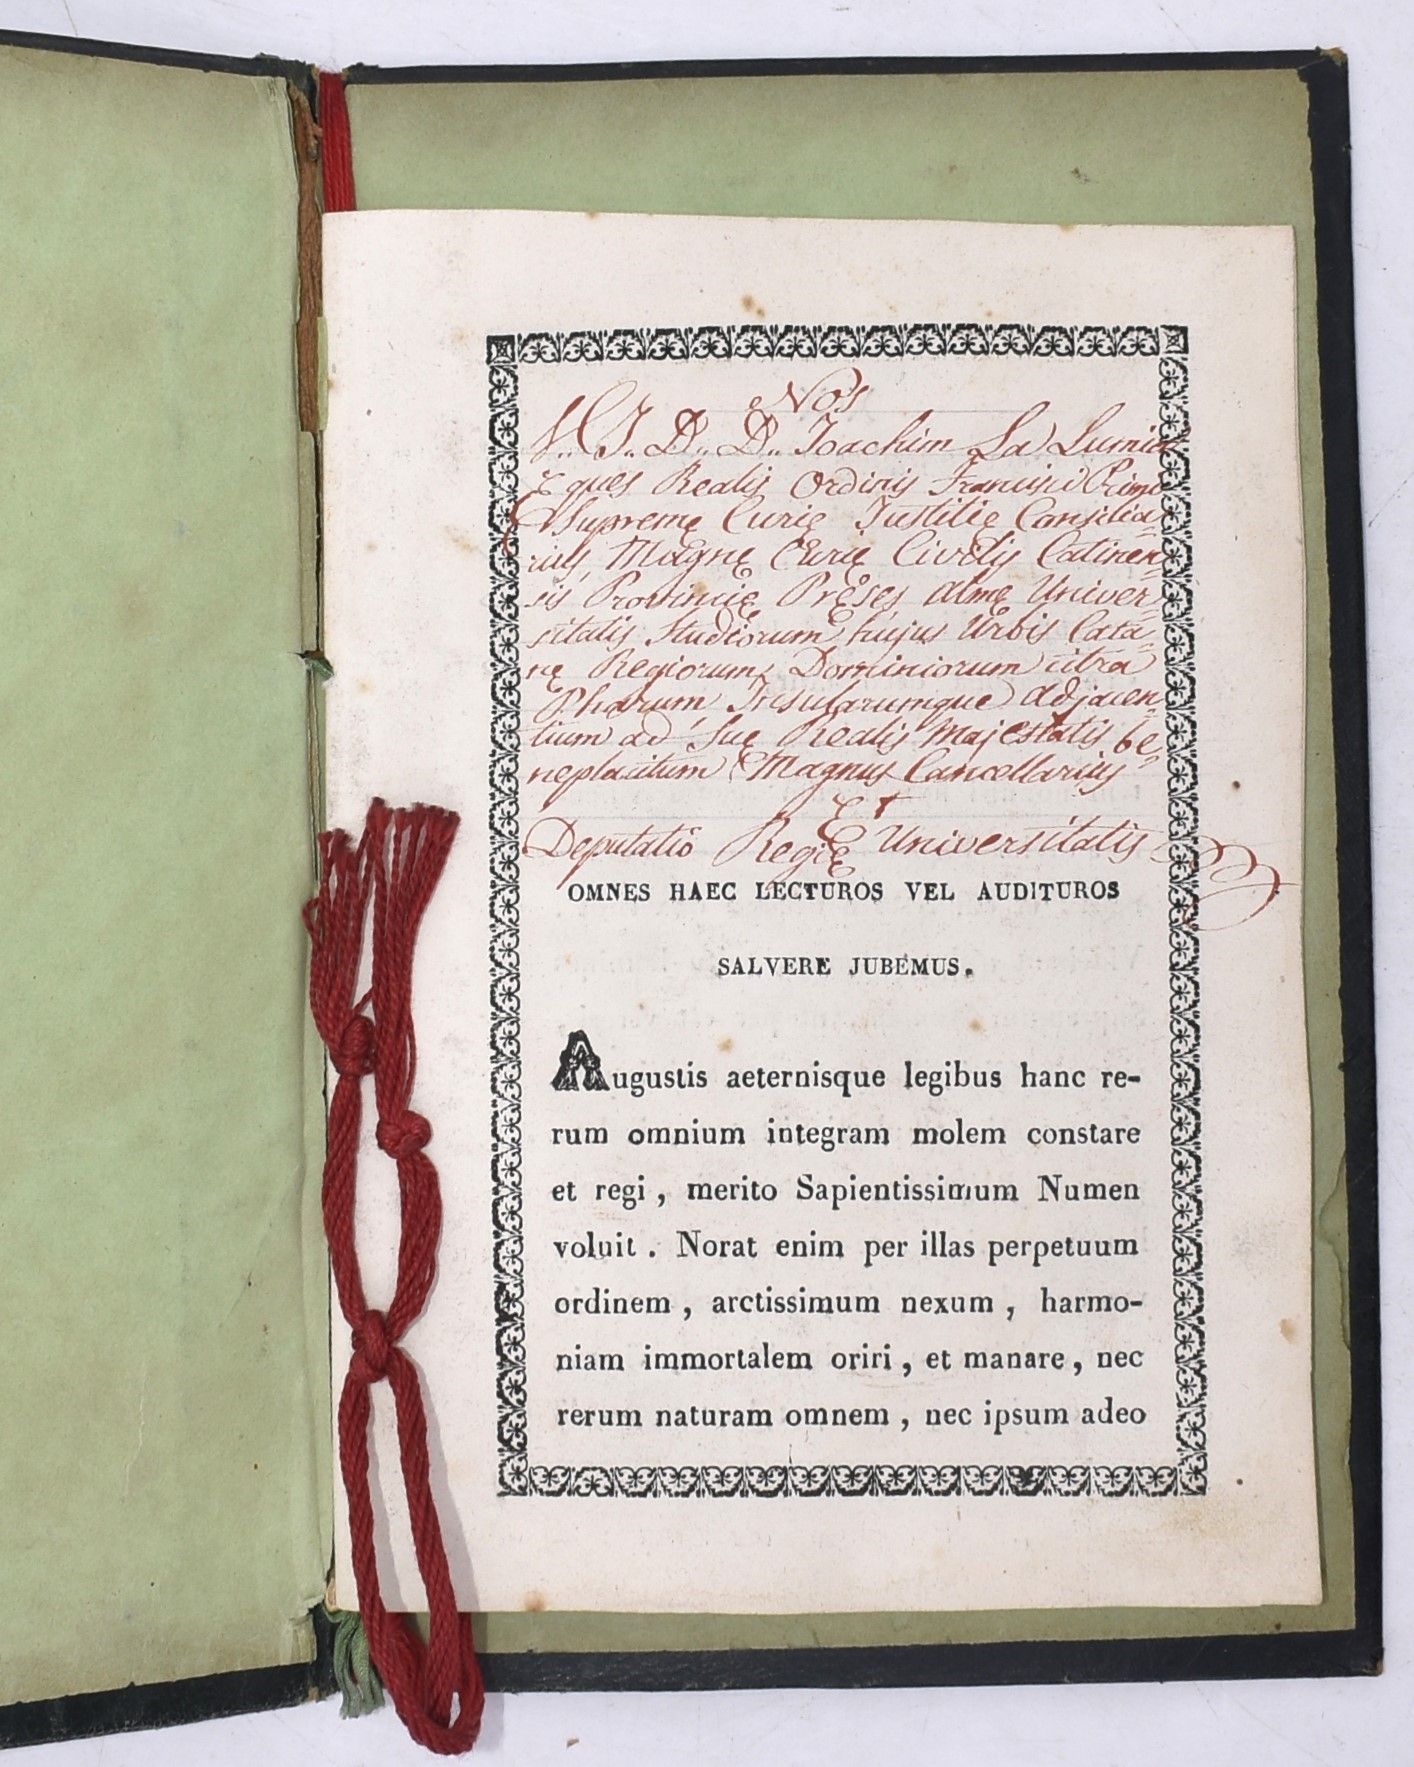 Nos
V. I. D. D. Joachim La Lumia
Eques Realis Ordinis Francisci Primi
Supremę Curię Justitię Consilia=
rius, Magnę Curię Civilis Catinen=
sis Provincię Pręses, almę Univer=
sitatis Studiorum hujus Urbis Cata=
nę Regiorum Dominiorum citra
Pharum, Insularumque adjacen=
tium ad Suę Realis Majestatis be=
neplacitum Magnus Cancellarius
Et
Deputatio Regię Universitatis
OMNES HAEC LECTUROS VEL AUDITUROS
SALVERE JUBEMUS.
Augustis aeternisque legibus hanc re-
rum omnium integram molem constare
et regi , merito Sapientissimum Numen
voluit . Norat enim per illas perpetuum
ordinem , arctissimum nexum , harmo-
niam immortalem oriri , et manare , nec
rerum naturam omnem , nec ipsum adeo